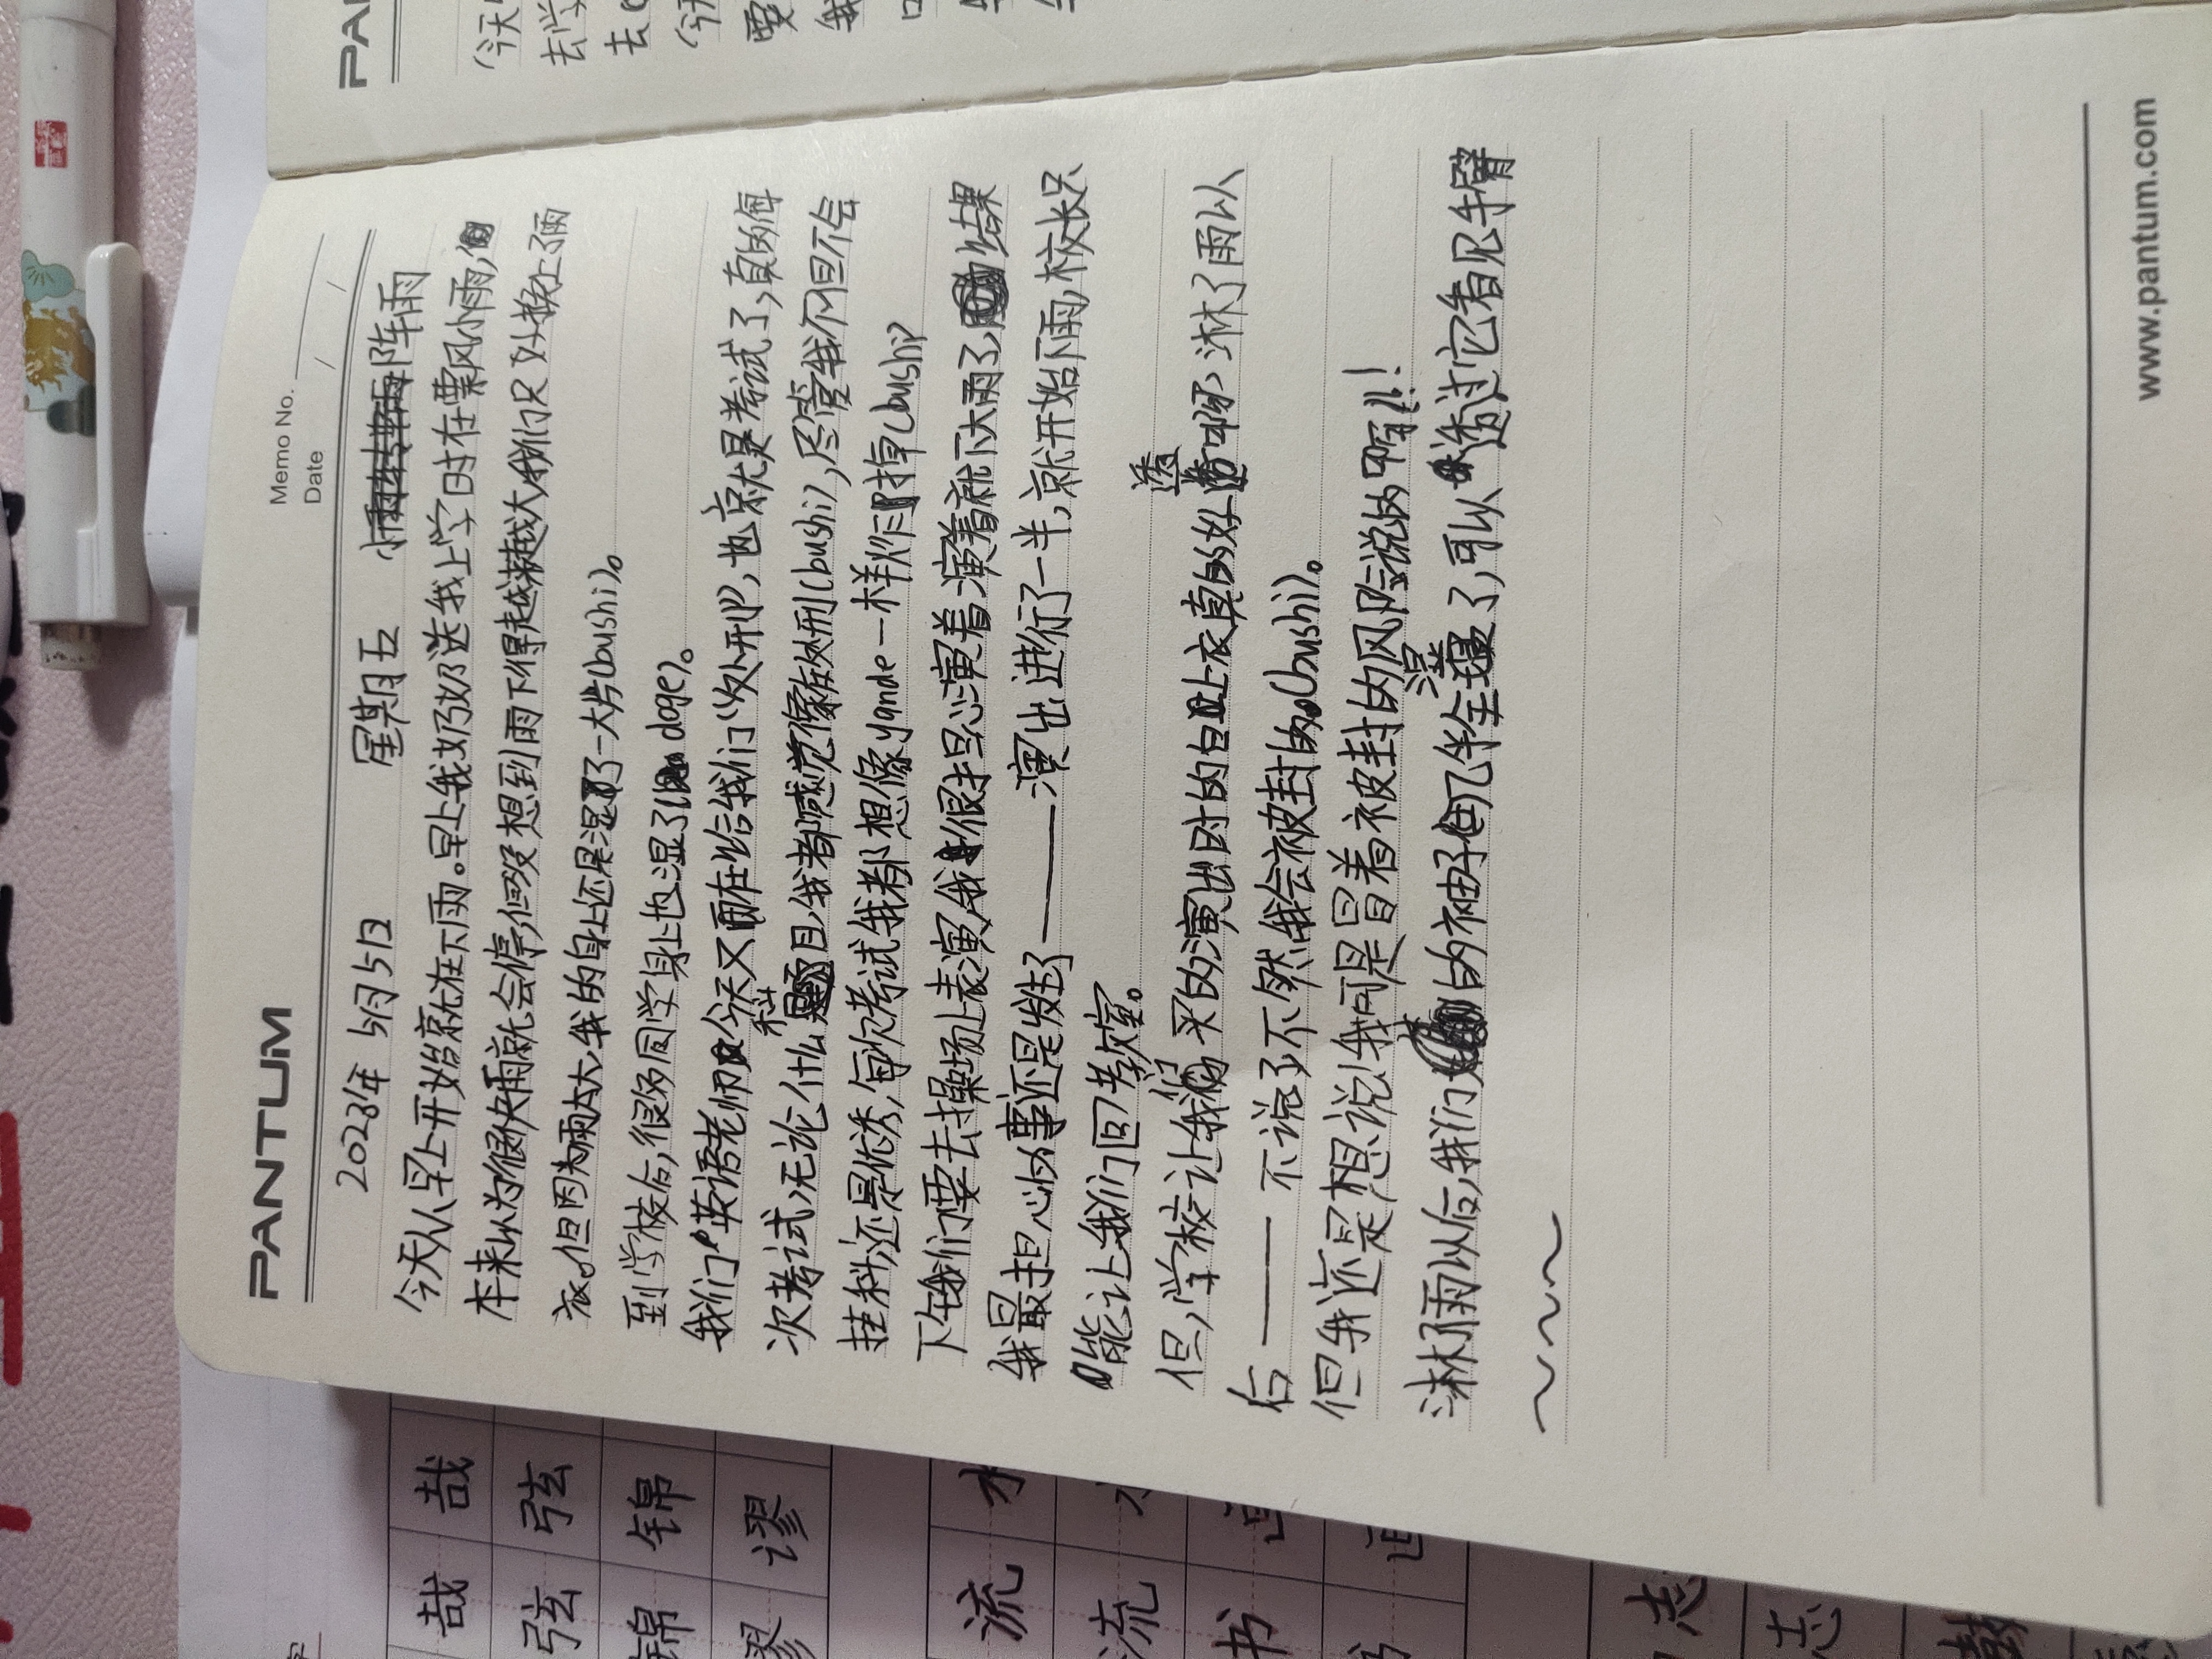 PANTUM
Memo No.
Date / /
2023年 5月5日 星期五 阵雨
今天从早上开始就在下雨。早上我奶奶送我上学时在飘风小雨,
本来以为很快雨就会停,但没想到雨下得越来越大,我们只好换上了雨
衣。但因为雨太大,我的身上还是湿了一大片(bushi)。
到学校后,很多同学身上也湿了(doge)。
我们英语老师今天又在给我们“处刑”,也就是考试了,真的每
次考试,无论什么科目,我都感觉像在处刑(bushi),尽管我不但不会
挂科,还是优秀,每次考试我都想像yande一样炸掉(bushi)
下午我们要去操场上表演,我很担心演着演着就下大雨了,结果
我最担心的事还是发生了——演出进行了一半,就开始下雨,校长只
能让我们回教室。
但,学校让我们买的演出时的白上衣真的好透啊,淋了雨以
后——不说了不然我会被封的(bushi)。
但我还是想说!我可是冒着被封的风险说的啊!!!
淋了雨以后,我们的袖子几乎全湿了,可以透过它看见手臂
～～～
www.pantum.com
PA
(今天
去学
去
(今天
要
我
口
哉 哉
弦 弦
锦 锦
谬 谬
流 水
流
书
志
志